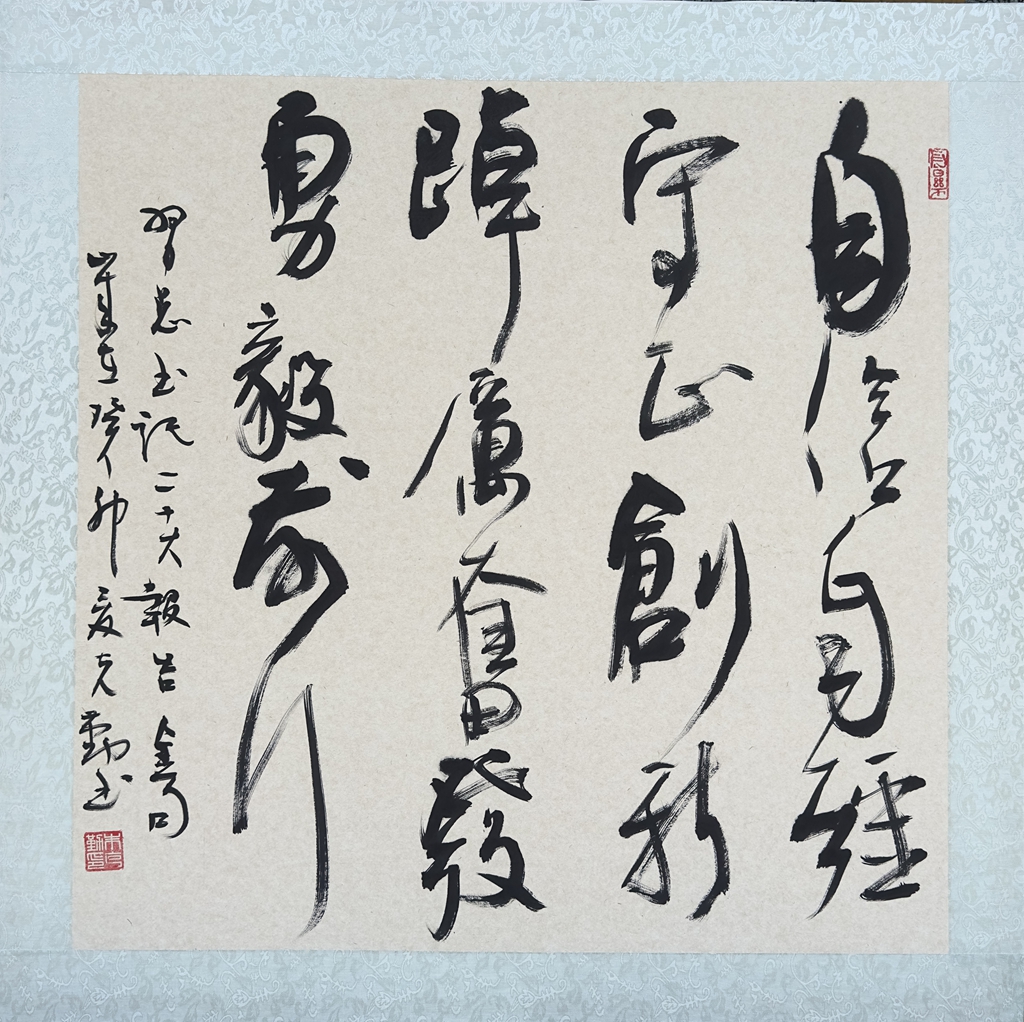 自信自彊
守正創新
踔厲奮發
勇毅前行
習总书記二十大報告金句
歲在癸卯夏克勤书